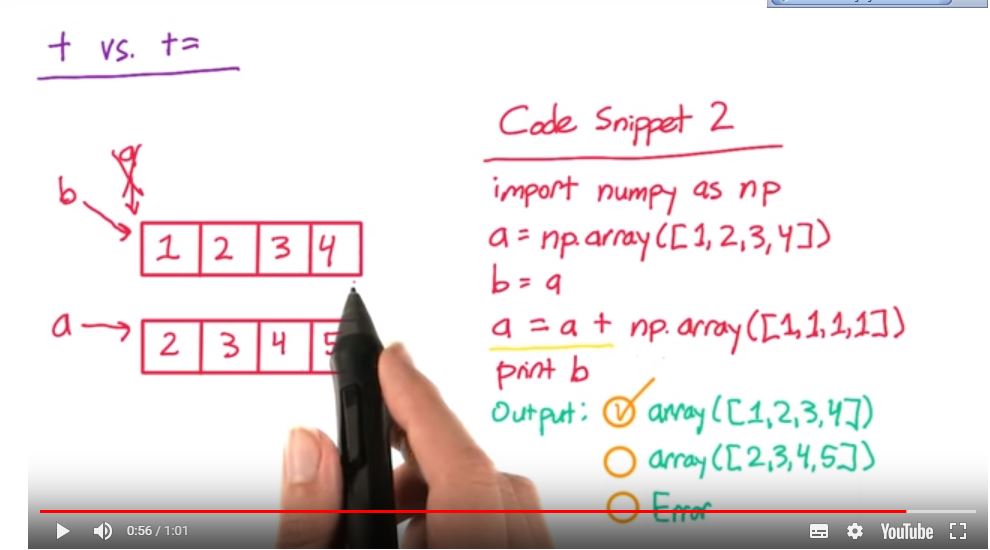 + vs. +=
Code Snippet 2
import numpy as np
a = np.array([1,2,3,4])
b = a
a = a + np.array([1,1,1,1])
print b
Output: array([1,2,3,4])
array([2,3,4,5])
Error
a
b
1 2 3 4
a
2 3 4 5
0:56 / 1:01
YouTube